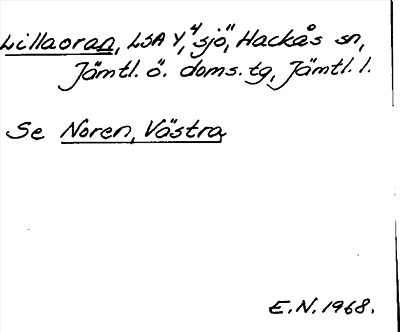 Lillaoran, LSA Y, "sjö", Hackås sn,
Jämtl. ö. doms. tg, Jämtl. l.
Se Noren, Västra
E.N. 1968.